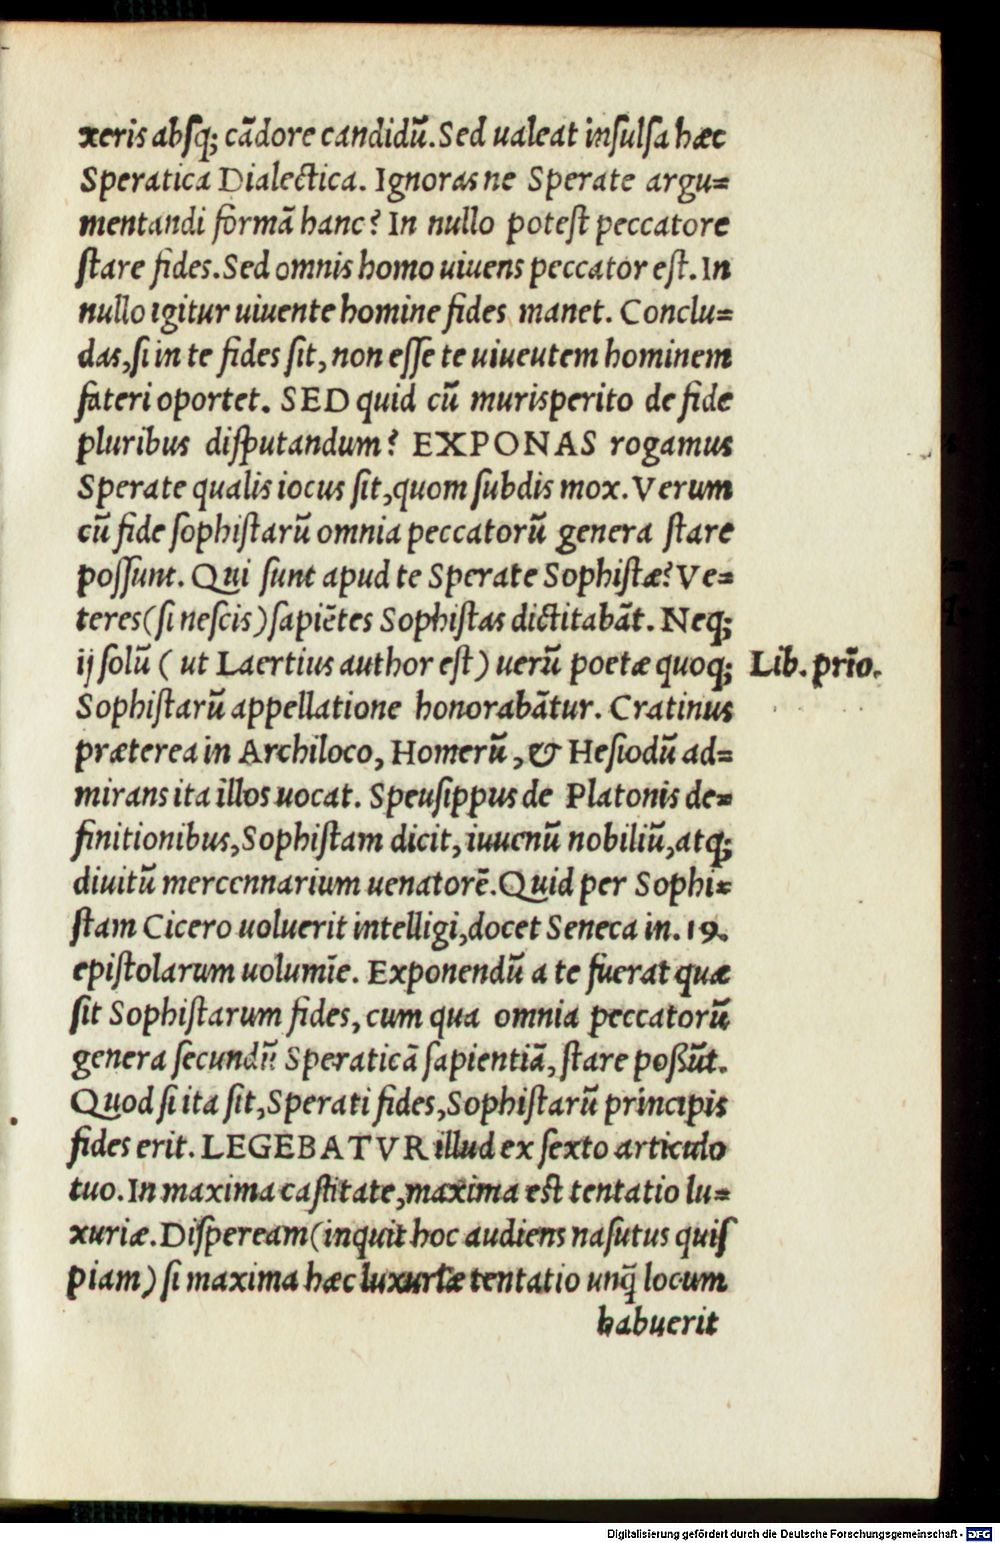 xeris absq; cādore candidū. Sed ualeat insulsa hæc
Speratica Dialectica. Ignoras ne Sperate argu=
mentandi formā hanc? In nullo potest peccatore
stare fides. Sed omnis homo uiuens peccator est. In
nullo igitur uiuente homine fides manet. Conclu=
das, si in te fides sit, non esse te uiueutem hominem
fateri oportet. SED quid cū murisperito de fide
pluribus disputandum? EXPONAS rogamus
Sperate qualis iocus sit, quom subdis mox. Verum
cū fide sophistarū omnia peccatorū genera stare
possunt. Qui sunt apud te Sperate Sophistæ? Ve=
teres (si nescis) sapiētes Sophistas dictitabāt. Neq;
ij solū ( ut Laertius author est ) uerū poetæ quoq; Lib. prīo.
Sophistarū appellatione honorabātur. Cratinus
præterea in Archiloco, Homerū, & Hesiodū ad=
mirans ita illos uocat. Speusippus de Platonis de=
finitionibus, Sophistam dicit, iuuenū nobiliū, atq;
diuitū mercennarium uenatorē. Quid per Sophi=
stam Cicero uoluerit intelligi, docet Seneca in. 19.
epistolarum uolumīe. Exponendū a te fuerat quæ
sit Sophistarum fides, cum qua omnia peccatorū
genera secundū Speraticā sapientiā, stare possūt.
Quod si ita sit, Sperati fides, Sophistarū principis
fides erit. LEGEBATVR illud ex sexto articulo
tuo. In maxima castitate, maxima est tentatio lu=
xuriæ. Dispeream (inquit hoc audiens nasutus quis
piam) si maxima hæc luxuriæ tentatio unq̄ locum
habuerit
Digitalisierung gefördert durch die Deutsche Forschungsgemeinschaft - DFG